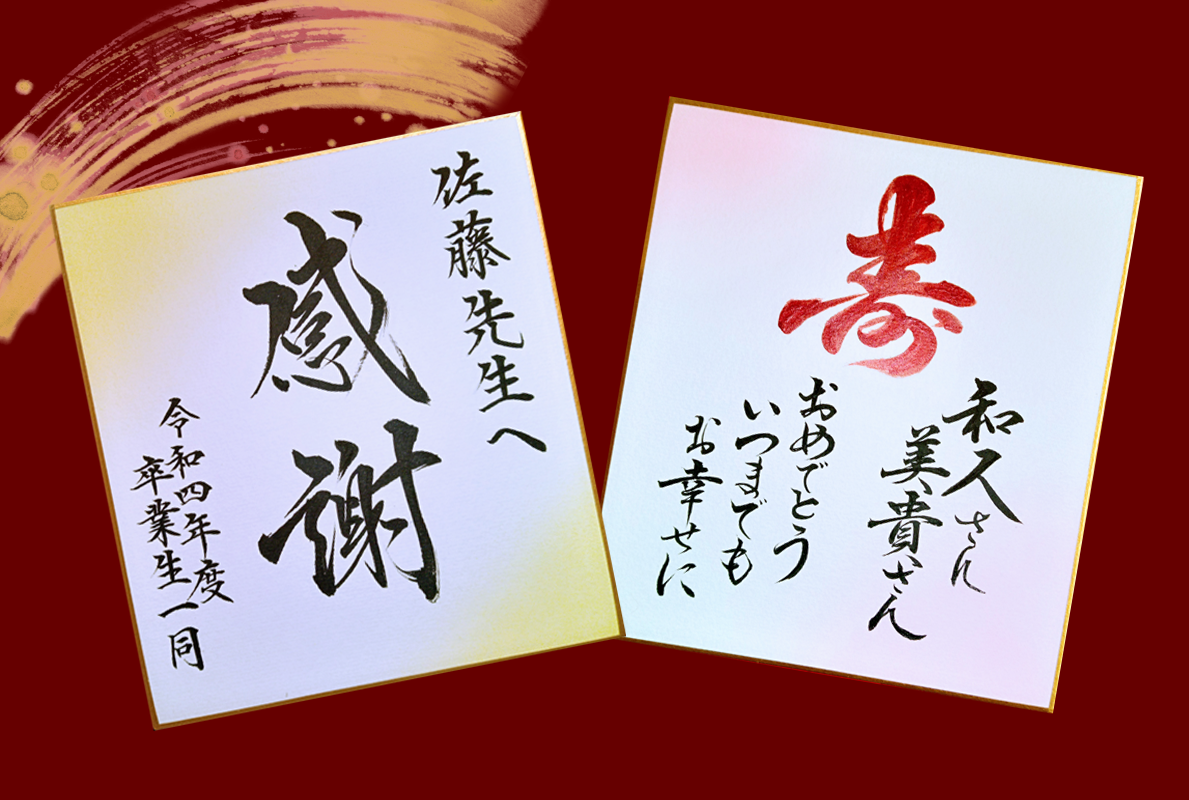 佐藤先生へ
感謝
令和四年度
卒業生一同
寿
和久さん
美貴さん
おめでとう
いつまでも
お幸せに